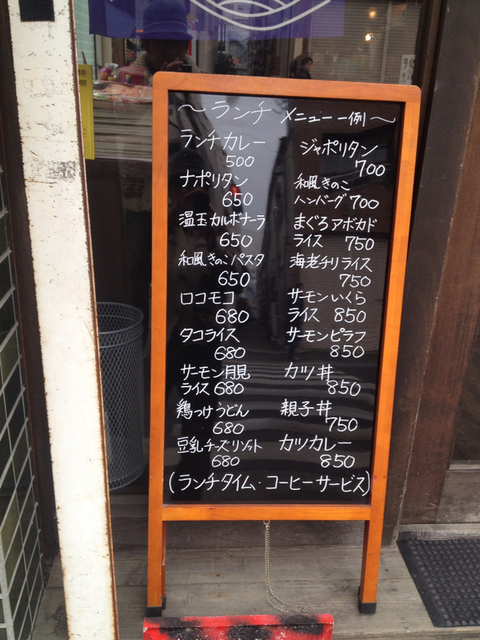 ～ランチ メニュー 一例～
ランチカレー
500
ナポリタン
650
温玉カルボナーラ
650
和風きのこパスタ
650
ロコモコ
680
タコライス
680
サーモン月見
ライス 680
鶏つけうどん
680
豆乳チーズリゾット
680
ジャポリタン
700
和風きのこ
ハンバーグ 700
まぐろアボカド
ライス 750
海老チリライス
750
サーモンいくら
ライス 850
サーモンピラフ
850
カツ丼
850
親子丼
750
カツカレー
850
(ランチタイム・コーヒーサービス)